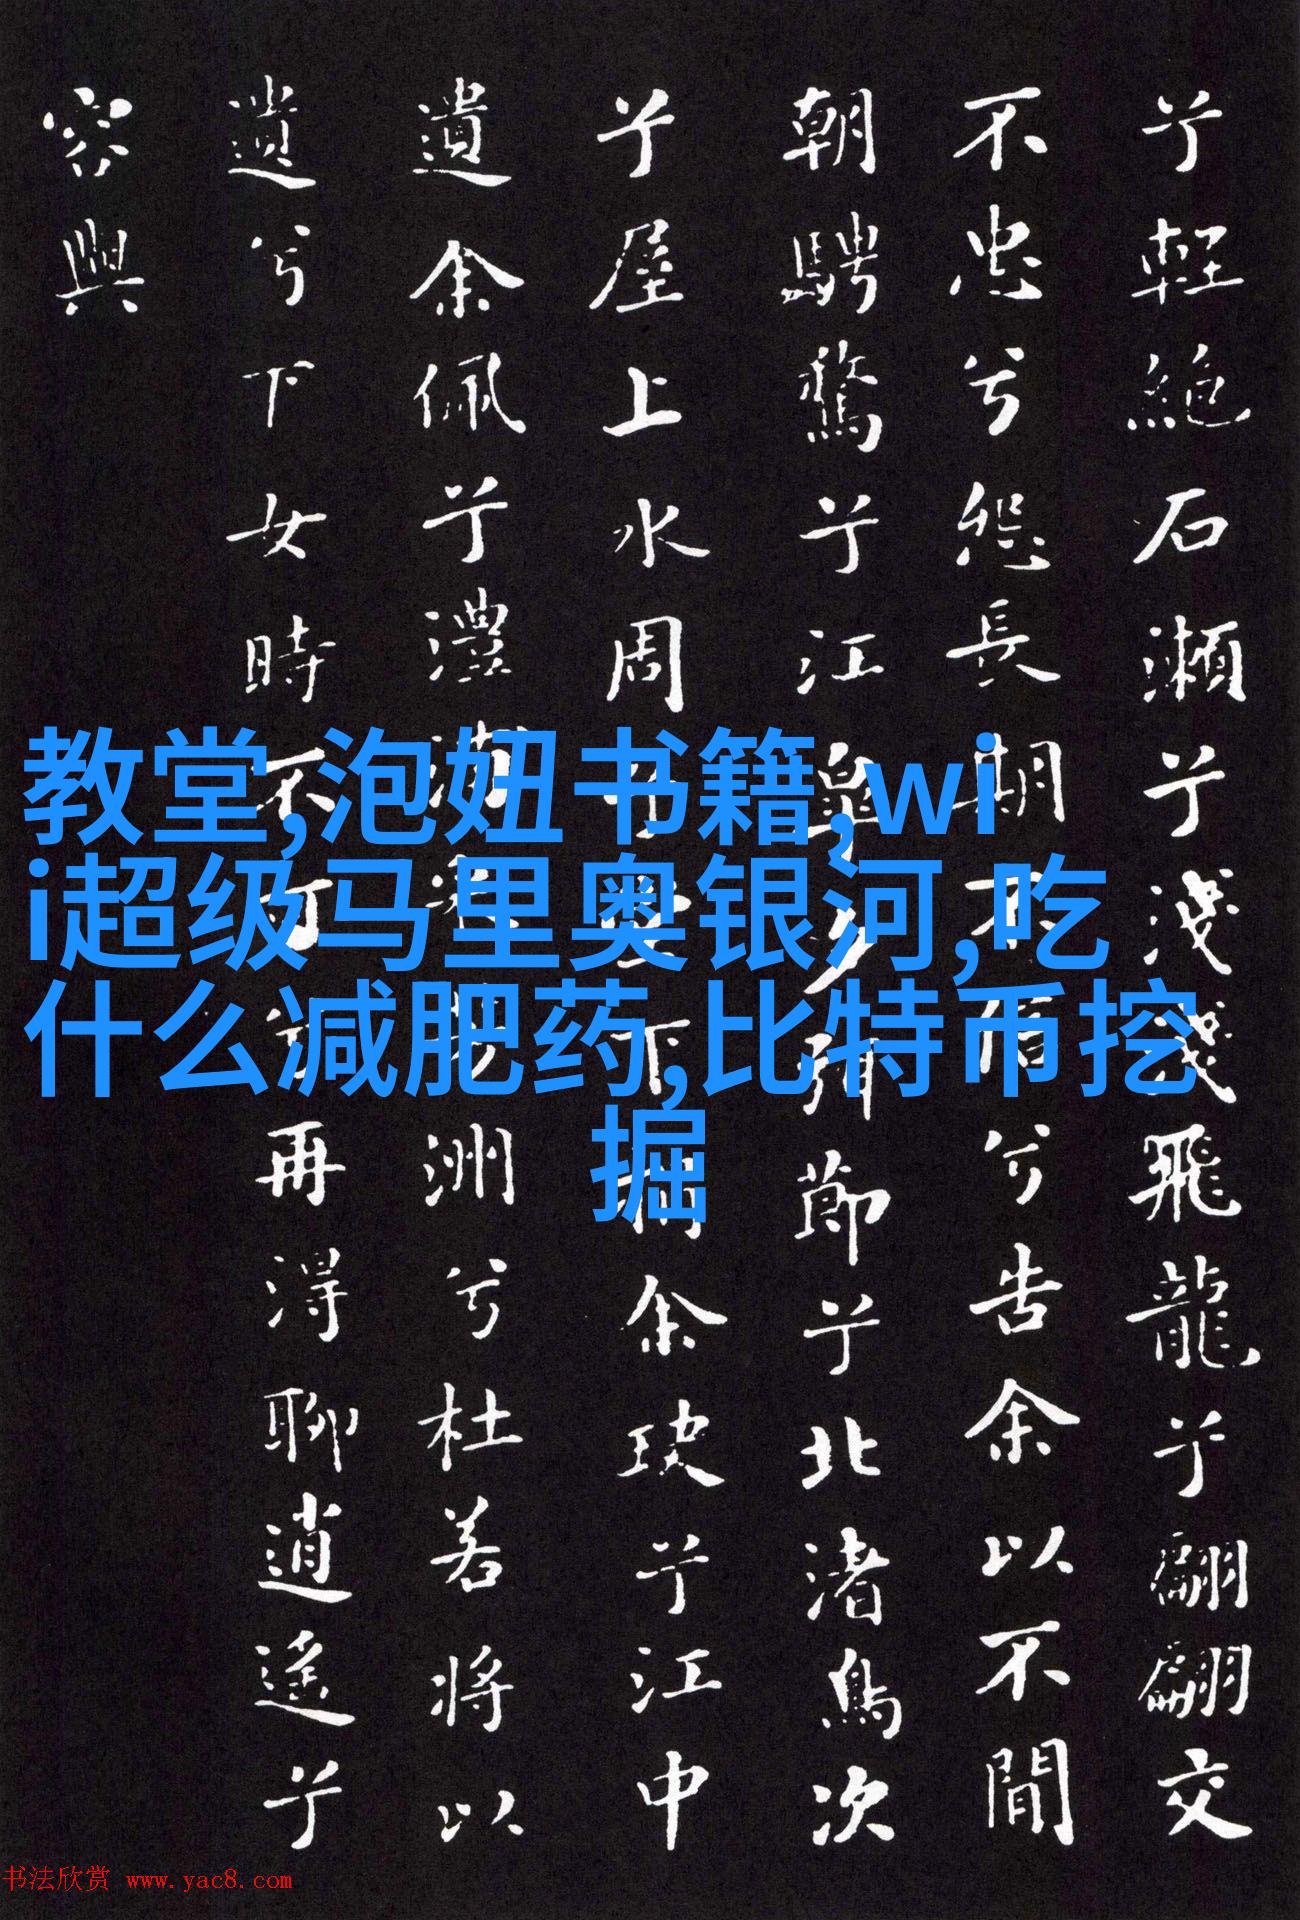 兮輕絕石瀨兮淺淺飛龍兮翩翩交
不忠兮怨長期不信兮告余以不間
朝騁騖兮江皋夕弭節兮北渚鳥次
兮屋上水周兮堂下捐余玦兮江中
遺余佩兮澧浦采芳洲兮杜若將以
遺兮下女時不可兮再得聊逍遙兮
容與
教堂,泡妞书籍,wi
i超级马里奥银河,吃
什么减肥药,比特币挖
掘
书法欣赏 www.yac8.com